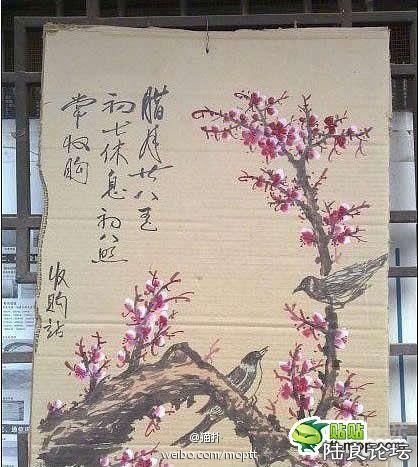 腊月廿八至
初七休息初八照
常收购
收购站
@猫扑
weibo.com/moptt
贴贴
陆良论坛